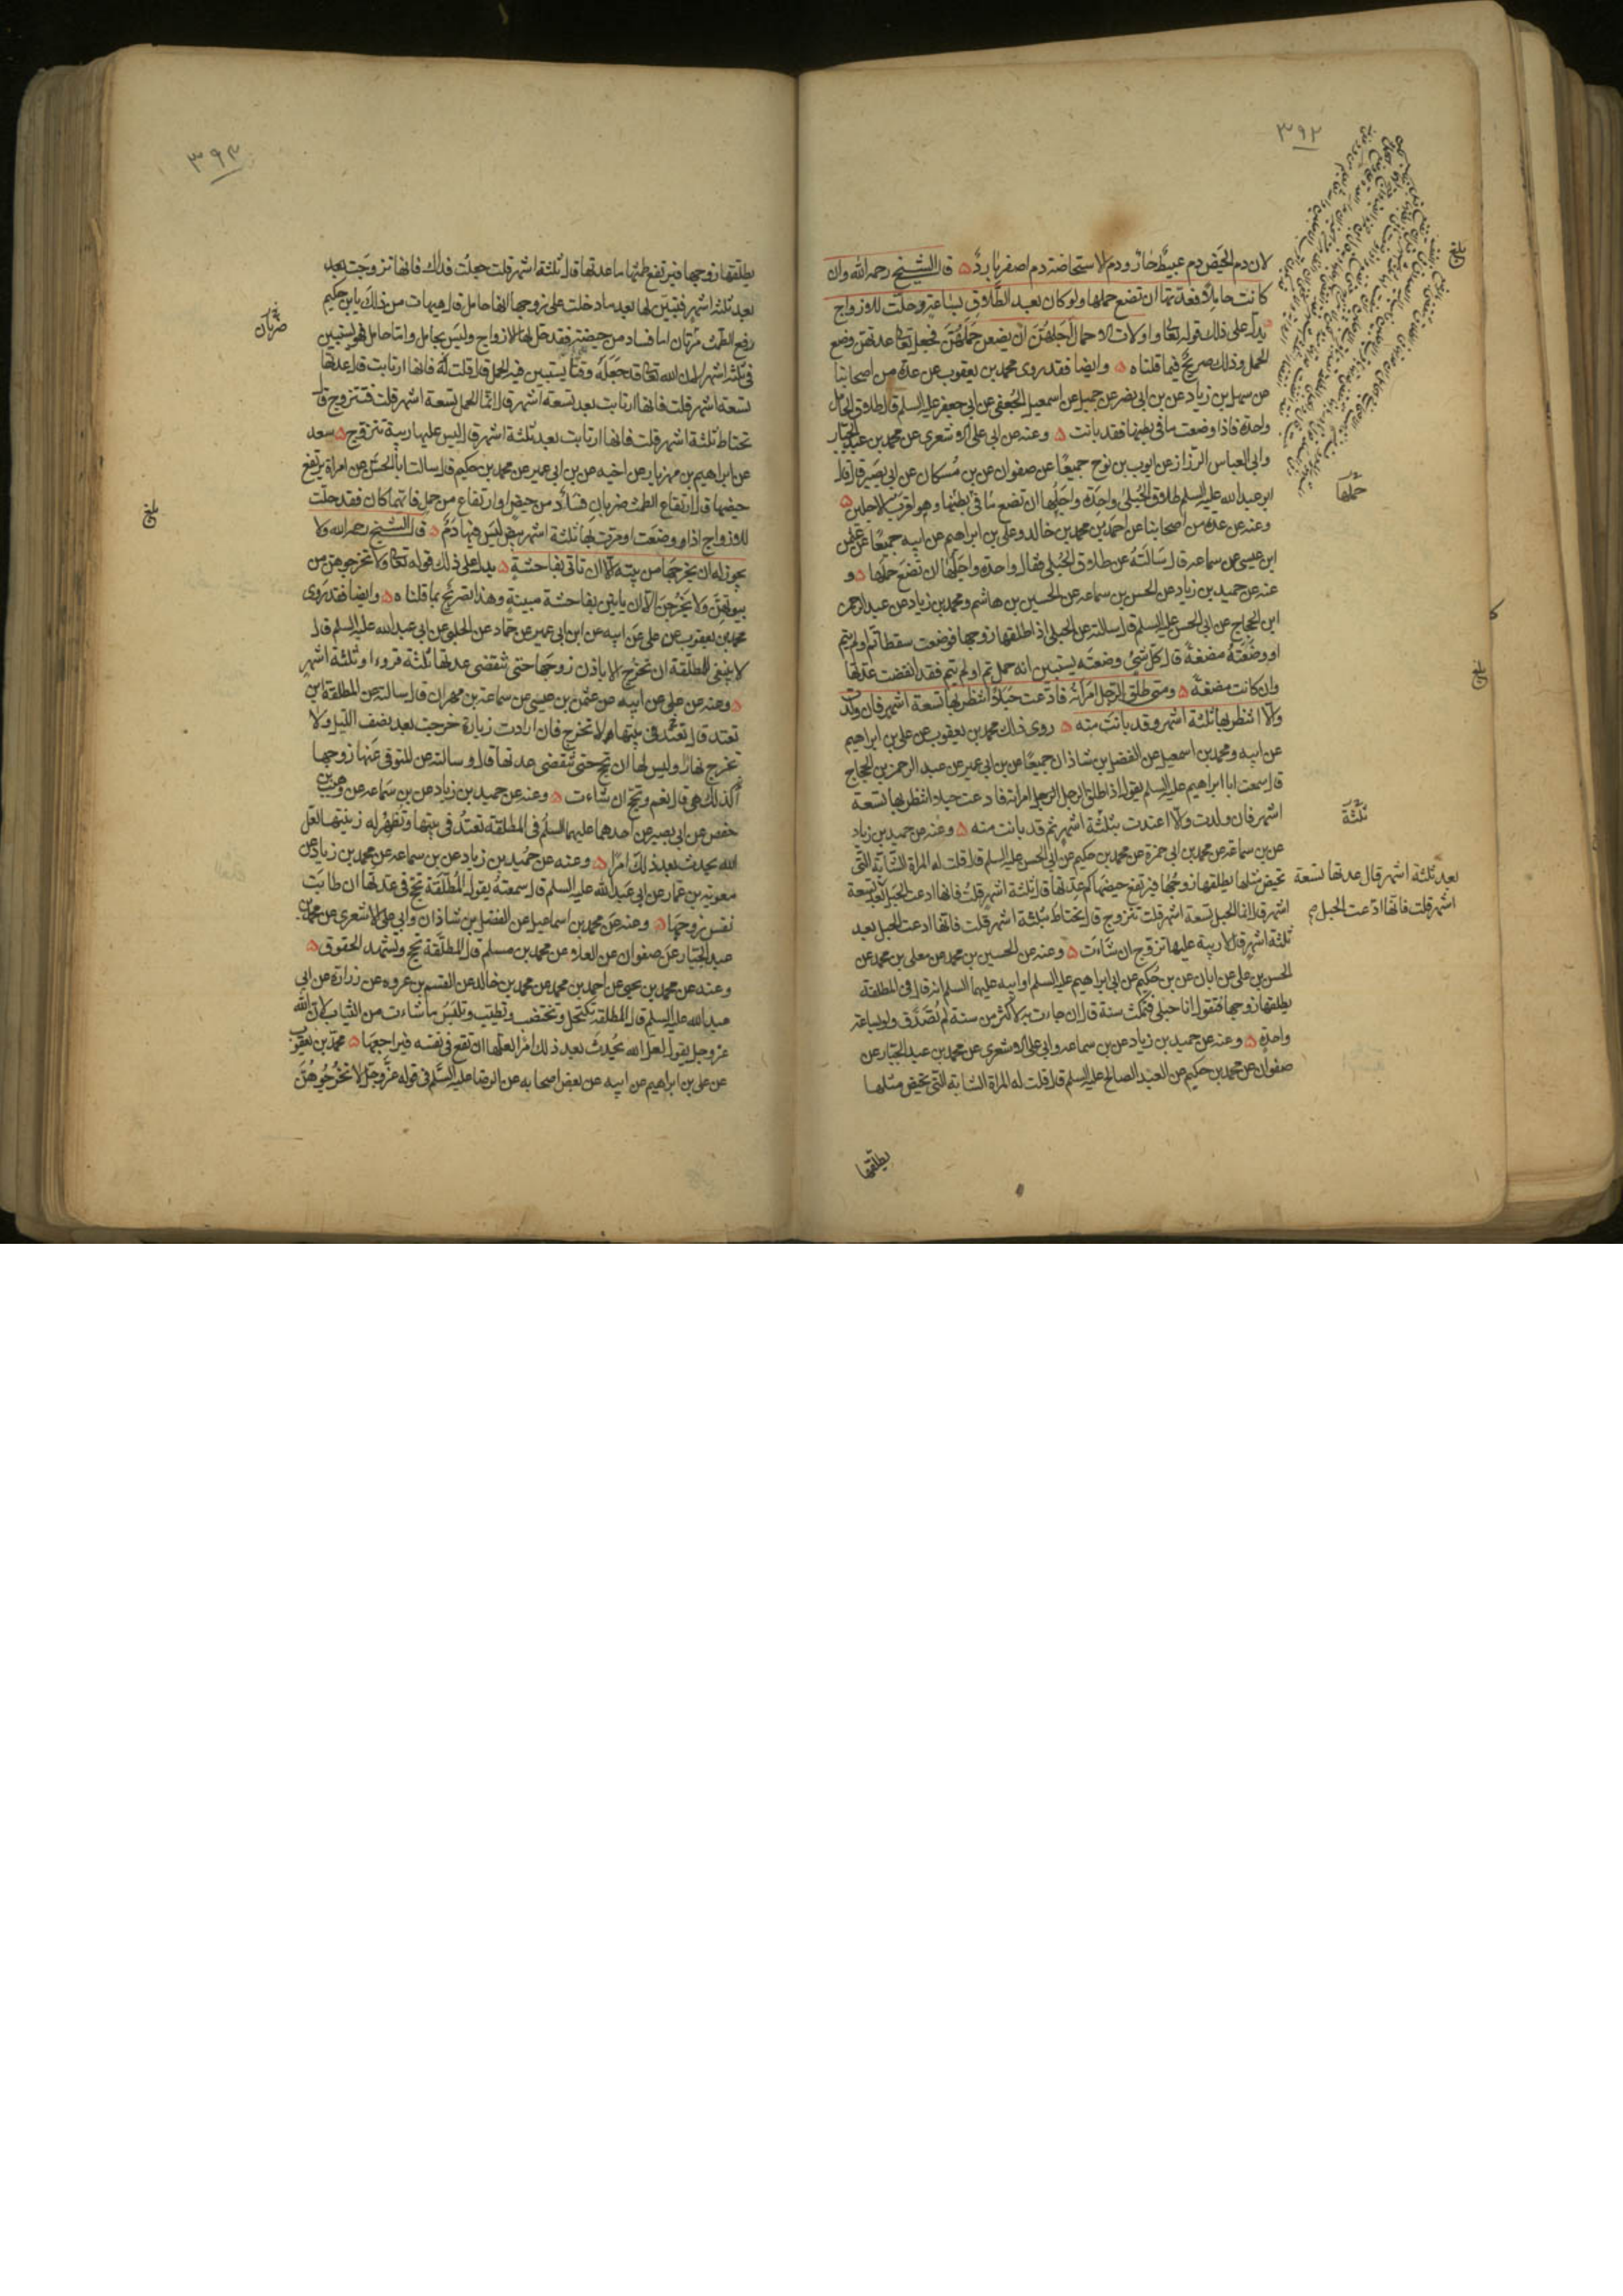 ٣٩٢
لان دم الحيض دم عبيط حار ودم الاستحاضة دم اصفر بارد ۵ قال الشيخ رحمه الله وان
كانت حاملا فعدتها ان تضع حملها ولو كان بعد الطلاق بساعة وحلت للازواج
يدل على ذلك قوله تعالى واولات الاحمال اجلهن ان يضعن حملهن فجعل تعالى عدتهن وضع
الحمل وذلك صريح فيما قلناه ۵ وايضا فقد روى محمد بن يعقوب عن عدة من اصحابنا
عن سهل بن زياد عن بن ابي نصر عن جميل عن اسمعيل الجعفي عن ابي جعفر عليه السلم قال طلاق الحامل
واحدة فاذا وضعت ما في بطنها فقد بانت ۵ وعنه عن ابي علي الاشعري عن محمد بن عبد الجبار
وابي العباس الرزاز عن ايوب بن نوح جميعا عن صفوان عن بن مسكان عن ابي بصير قال قال
ابو عبد الله عليه السلم طلاق الحبلى واحدة واجلها ان تضع ما في بطنها وهو اقرب الاجلين ۵
وعنه عن عدة من اصحابنا عن احمد بن محمد بن خالد وعلي بن ابراهيم عن ابيه جميعا عن عثمن
ابن عيسى عن سماعه قال سالته عن طلاق الحبلى فقال واحدة واجلها ان تضع حملها ۵ و
عنه عن حميد بن زياد عن الحسن بن سماعه عن الحسين بن هاشم ومحمد بن زياد عن عبد الرحمن
ابن الحجاج عن ابي الحسن عليه السلم قال سالته عن الحبلى اذا طلقها زوجها فوضعت سقطا تم او لم يتم
او وضعته مضغة قال كل شئ وضعته يستبين انه حمل تم او لم يتم فقد انقضت عدتها
وان كانت مضغة ۵ ومتى طلق الرجل امراته فادعت حبلا انتظر بها تسعة اشهر فان ولدت
والا انتظر بها ثلثة اشهر وقد بانت منه ۵ روى ذلك محمد بن يعقوب عن علي بن ابراهيم
عن ابيه ومحمد بن اسمعيل عن الفضل بن شاذان جميعا عن بن ابي عمير عن عبد الرحمن بن الحجاج
قال سمعت ابا ابراهيم عليه السلم يقول اذا طلق الرجل امراته فادعت حبلا انتظر بها تسعة
اشهر فان ولدت والا اعتدت بثلثة اشهر ثم قد بانت منه ۵ وعنه عن حميد بن زياد
عن بن سماعه عن محمد بن ابي حمزة عن محمد بن حكيم عن ابي الحسن عليه السلم قال قلت له المراة الشابة التي
تحيض مثلها يطلقها زوجها فيرتفع حيضها كم عدتها قال ثلثة اشهر قلت فانها ادعت الحبل بعد تسعة
اشهر قال انما الحبل تسعة اشهر قلت تتزوج قال تحتاط بثلثة اشهر قلت فانها ادعت الحبل بعد
ثلثة اشهر قال لا ريبة عليها تزوج ان شاءت ۵ وعنه عن الحسين بن محمد عن معلى بن محمد عن
الحسن بن علي عن ابان عن بن حكيم عن ابي ابراهيم عليه السلم او ابيه عليهما السلم انه قال في المطلقة
يطلقها زوجها فتقول انا حبلى فتمكث سنة قال ان جاءت به لاكثر من سنة لم تصدق ولو ساعة
واحدة ۵ وعنه عن حميد بن زياد عن بن سماعه وابي علي الاشعري عن محمد بن عبد الجبار عن
صفوان عن محمد بن حكيم عن العبد الصالح عليه السلم قال قلت له المراة الشابة التي تحيض مثلها
يطلقها
بلغ
حملها
ثلثة
بعد ثلثة اشهر قال عدتها تسعة
اشهر قلت فانها ادعت الحبل
بلغ
٣٩٣
يطلقها زوجها فيرتفع طمثها ما عدتها قال ثلثة اشهر قلت جعلت فداك فانها تزوجت بعد
بعد ثلثة اشهر فتبين لها بعد ما دخلت على زوجها انها حامل قال هيهات من ذلك يا بن حكيم
رفع الطمث ضربان اما فساد من حيضة فقد حل لها الازواج وليس بحامل واما حامل فهو يستبين
في ثلثة اشهر لان الله تعالى قد جعله وقتا يستبين فيه الحمل قال قلت له فانها ارتابت قال عدتها
تسعة اشهر قلت فانها ارتابت بعد تسعة اشهر قال انما الحمل تسعة اشهر قلت فتتزوج قال
تحتاط ثلثة اشهر قلت فانها ارتابت بعد ثلثة اشهر قال ليس عليها ريبة تتزوج ۵ سعد
عن ابراهيم بن مهزيار عن اخيه عن بن ابي عمير عن محمد بن حكيم قال سالت ابا الحسن عن امراة يرتفع
حيضها قال ارتفاع الطمث ضربان فساد من حيض او ارتفاع من حمل فايهما كان فقد حلت
للازواج اذا وضعت او مرت بها ثلثة اشهر بيض ليس فيها دم ۵ قال الشيخ رحمه الله ولا
يجوز له ان يخرجها من بيته الا ان تاتي بفاحشة ۵ يدل على ذلك قوله تعالى ولا تخرجوهن من
بيوتهن ولا يخرجن الا ان ياتين بفاحشة مبينة وهذا تصريح بما قلناه ۵ وايضا فقد روى
محمد بن يعقوب عن علي عن ابيه عن ابن ابي عمير عن حماد عن الحلبي عن ابي عبد الله عليه السلم قال
لا ينبغي للمطلقة ان تخرج الا باذن زوجها حتى تنقضي عدتها ثلثة قروء او ثلثة اشهر
۵ وعنه عن علي عن ابيه عن عثمن بن عيسى عن سماعة بن مهران قال سالته عن المطلقة اين
تعتد قال تعتد في بيتها ولا تخرج فان ارادت زيارة خرجت بعد نصف الليل ولا
تخرج نهارا وليس لها ان تحج حتى تنقضي عدتها قال وسالته عن المتوفى عنها زوجها
اكذلك هي قال نعم وتحج ان شاءت ۵ وعنه عن حميد بن زياد عن بن سماعه عن وهيب بن
حفص عن ابي بصير عن احدهما عليهما السلم في المطلقة تعتد في بيتها وتظهر له زينتها لعل
الله يحدث بعد ذلك امرا ۵ وعنه عن حميد بن زياد عن بن سماعه عن محمد بن زياد عن
معوية بن عمار عن ابي عبد الله عليه السلم قال سمعته يقول المطلقة تحج في عدتها ان طابت
نفس زوجها ۵ وعنه عن محمد بن اسماعيل عن الفضل بن شاذان وابي علي الاشعري عن محمد بن
عبد الجبار عن صفوان عن العلاء عن محمد بن مسلم قال المطلقة تحج وتشهد الحقوق ۵
وعنه عن محمد بن يحيى عن احمد بن محمد عن محمد بن خالد عن القسم بن عروه عن زرارة عن ابي
عبد الله عليه السلم قال المطلقة تكتحل وتختضب وتطيب وتلبس ما شاءت من الثياب لان الله
عز وجل يقول لعل الله يحدث بعد ذلك امرا لعلها ان تقع في نفسه فيراجعها ۵ محمد بن يعقوب
عن علي بن ابراهيم عن ابيه عن بعض اصحابه عن الرضا عليه السلم في قوله عز وجل لا تخرجوهن
ضربان
بلغ